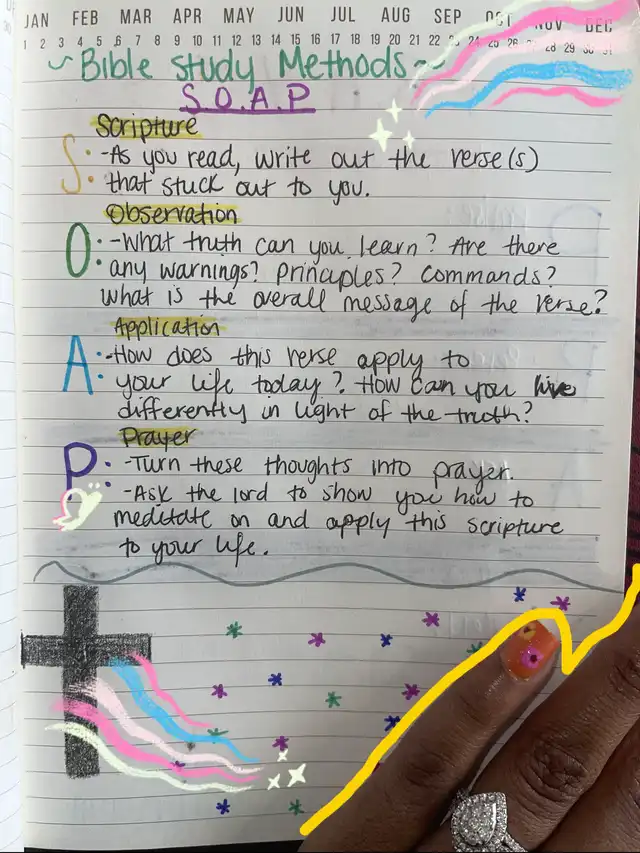 JAN FEB MAR APR MAY JUN JUL AUG SEP OCT NOV DEC
1 2 3 4 5 6 7 8 9 10 11 12 13 14 15 16 17 18 19 20 21 22 23 24 25 26 28 29 30 31
~Bible study Methods~
S.O.A.P
Scripture
S: -As you read, write out the verse(s)
that stuck out to you.
Observation
O: -What truth can you learn? Are there
any warnings? Principles? Commands?
What is the overall message of the verse?
Application
A: -How does this verse apply to
your life today? How can you live
differently in light of the truth?
Prayer
P: -Turn these thoughts into prayer.
-Ask the lord to show you how to
meditate on and apply this scripture
to your life.